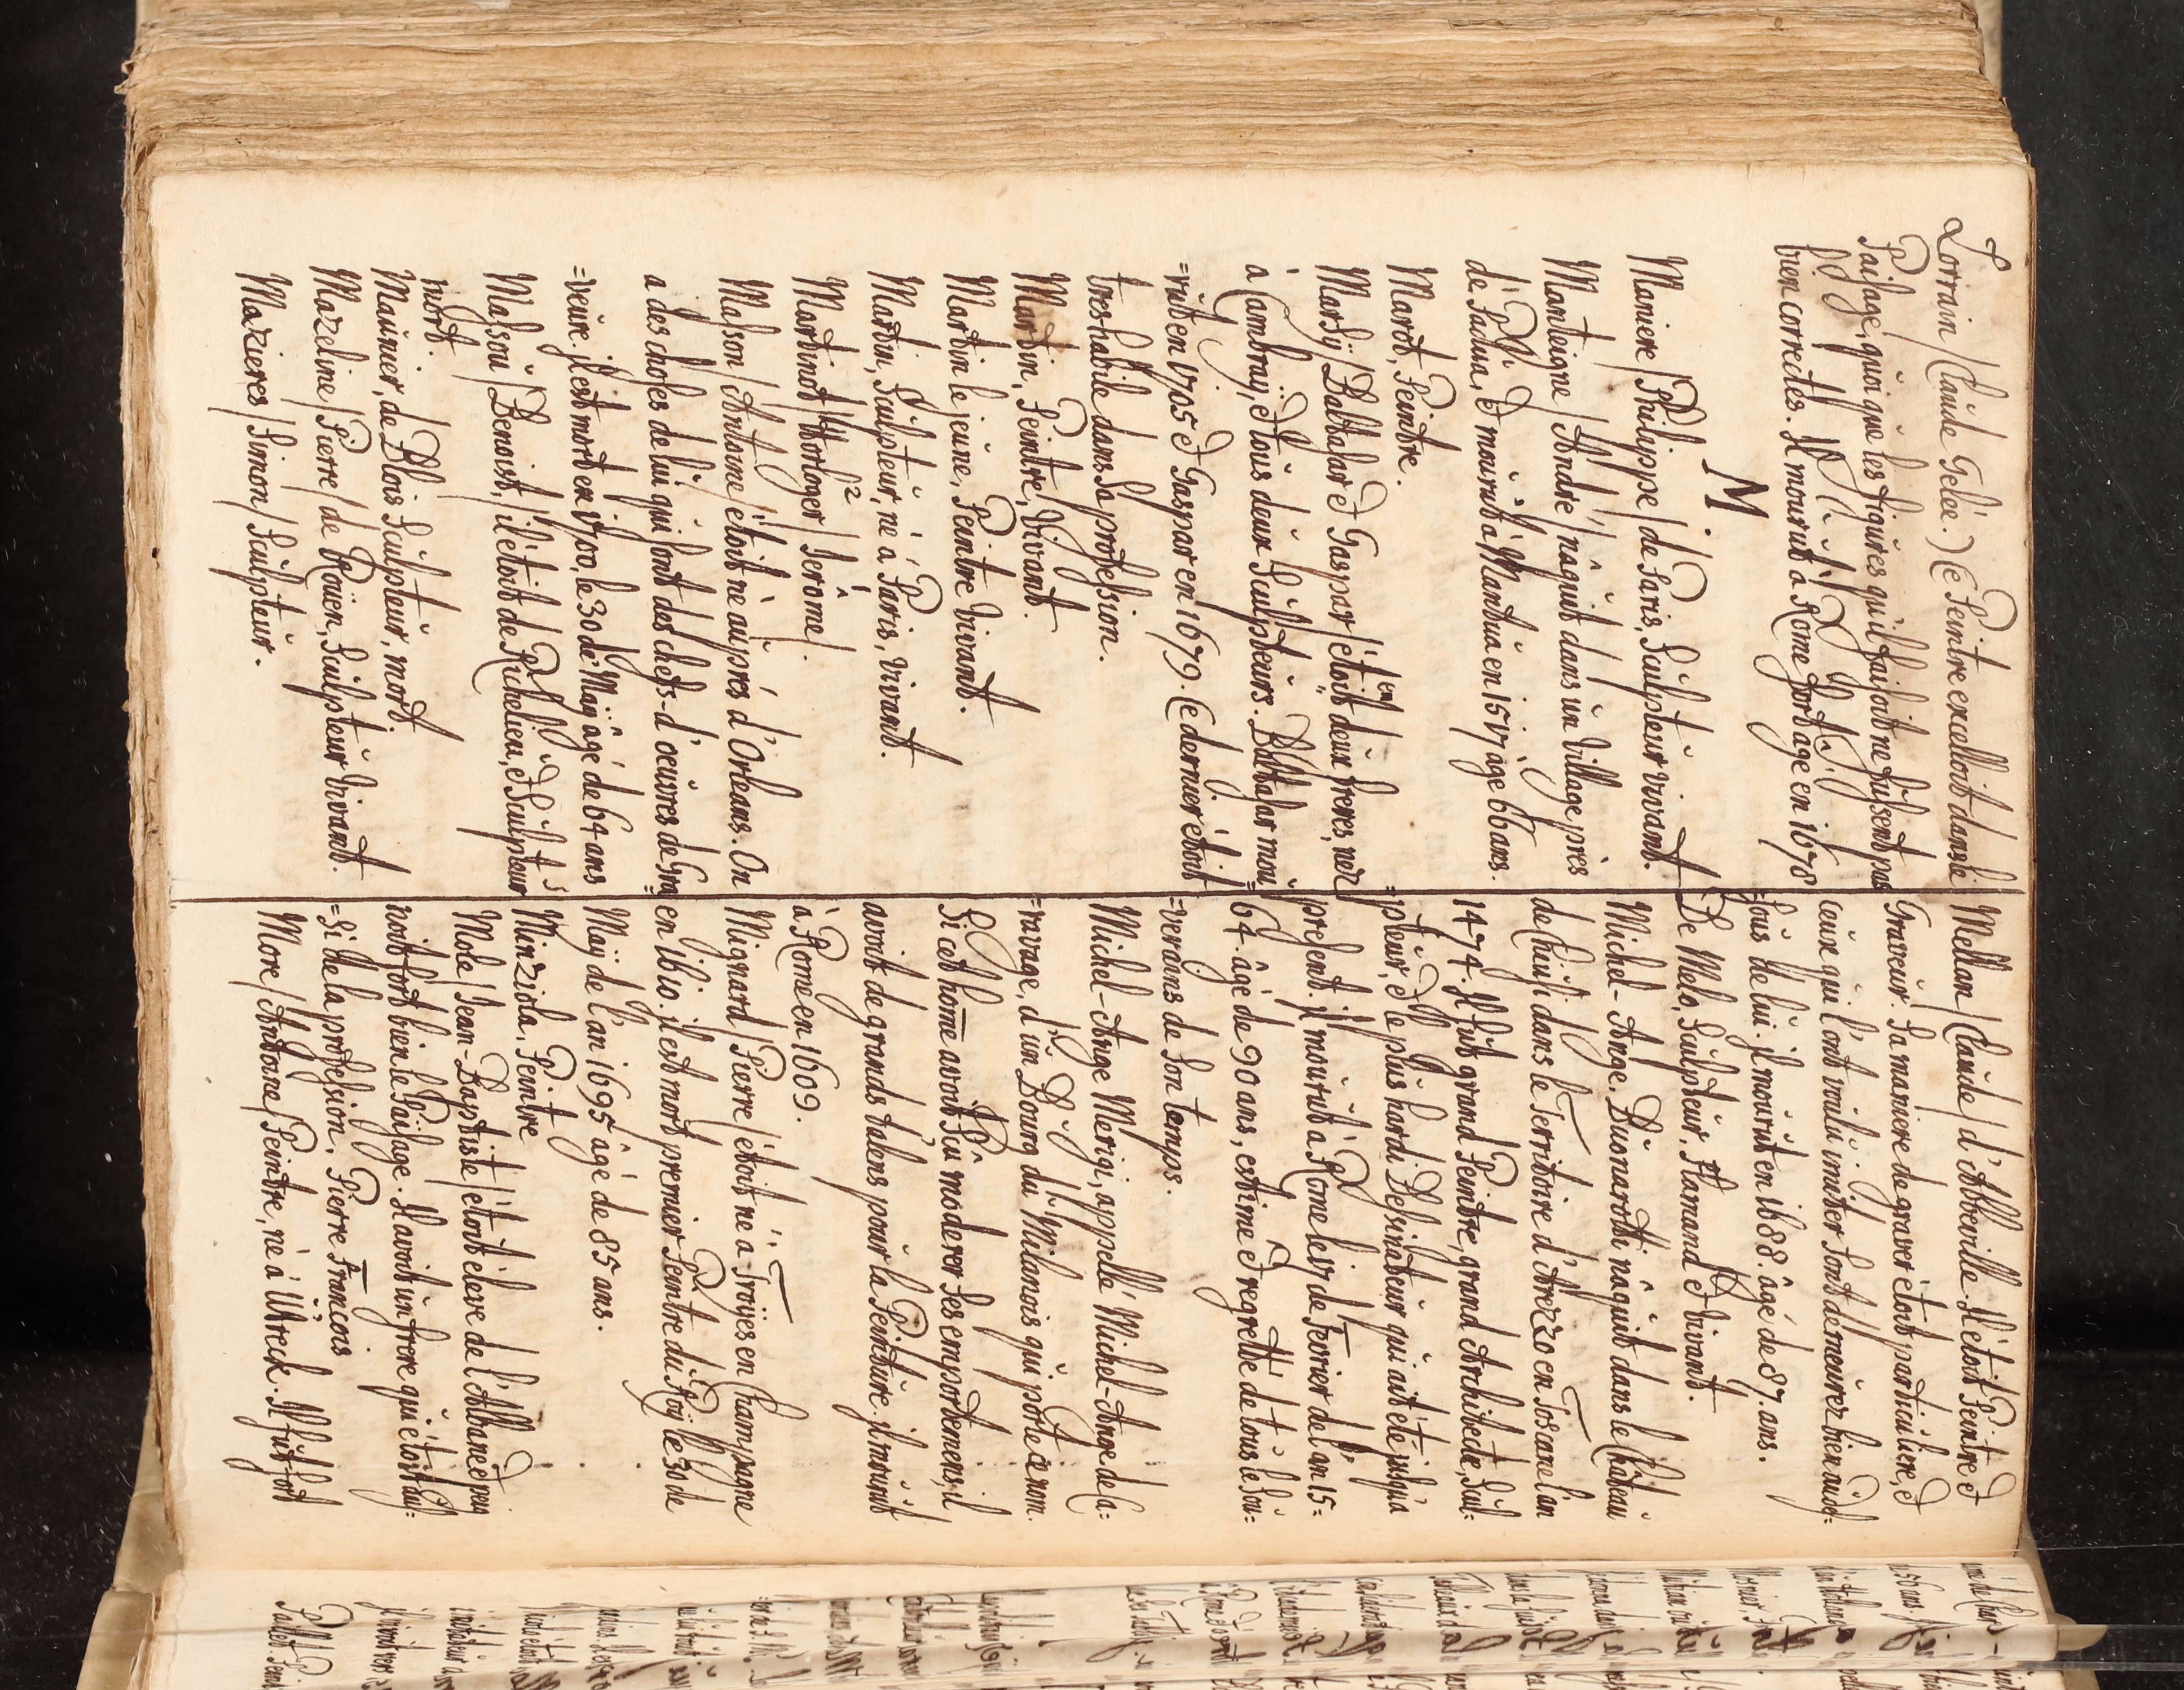 Lorrain (Claude Gelée.) Ce Peintre excelloit dans le
Païsage, quoi que les figures qu'il faisoit ne fussent pas
bien correctes. Il mourut a Rome fort age en 1678
M.
Maniere (Philippe) de Paris, Sculpteur vivant.
Manteigne (André) nâquit dans un Village près
de Padua, et mourut à Mantua en 1517 age 66 ans.
Marot, Peintre.
Marsÿ (Baltasar et Gaspar) étoient deux freres, nez
à Cambraÿ, et tous deux Sculpteurs. Baltasar mou=
=rut en 1705 et Gaspar en 1679. Ce dernier étoit
tres-habile dans sa profession.
Martin, Peintre, Vivant.
Martin le jeune, Peintre Vivant.
Martin, Sculpteur, né à Paris, vivant.
Martinot (Horloger) Jerome).
Masson (Antoine) étoit né auprés d'Orleans. On
a des choses de lui qui sont des chefs-d'œuvres de Gra=
=veure. il est mort en 1700, le 30 de Maÿ âgé de 64 ans
Massou (Benoist,) il étoit de Richelieu, et Sculpteur
mort.
Maunier, de Blois Sculpteur, mort.
Mazeline (Pierre) de Roüen, Sculpteur Vivant.
Mazieres (Simon) Sculpteur.
Mellan (Claude) d'Abbeville. Il étoit Peintre et
Graveur. Sa maniere de graver étoit particuliere, et
ceux qui l'ont voulu imiter sont demeurez bien au de=
=sous de lui. il mourut en 1688. âgé de 87. ans.
De Melo, Sculpteur. Flamand et vivant.
Michel-Ange. Buonarotti nâquit dans le Château
de Chiusi dans le Territoire d'Arezzo en Toscane l'an
1474. Il fut grand Peintre, grand Architecte, Scul=
=pteur, et le plus hardi Dessinateur qui ait été jusqu'a
present. il mourut a Rome le 17 de Fevrier de l'an 15=
64. âgé de 90 ans, estimé et regretté de tous le Sou=
=verains de son temps.
Michel-Ange Merigi, appellé Michel-Ange de Ca=
=ravage, d'un Bourg du Milanois qui porte ce nom.
Si cet home avoit pû moderer ses emportemens, il
avoit de grands talens pour la Peinture. il mourut
à Rome en 1609.
Mignard (Pierre) étoit né a Troÿes en Champagne
en 1610. il est mort premier Peintre du Roÿ le 30 de
Maÿ de l'an 1695 âgé de 85 ans.
Minziola, Peintre
Mole (Jean-Baptiste) étoit éleve de l'Albane et pei
noit fort bien le Païsage. Il avoit un frere qui étoit aus=
=si de la profession. Pierre François
More (Antoine) Peintre, né à Utreck. Il fut fort